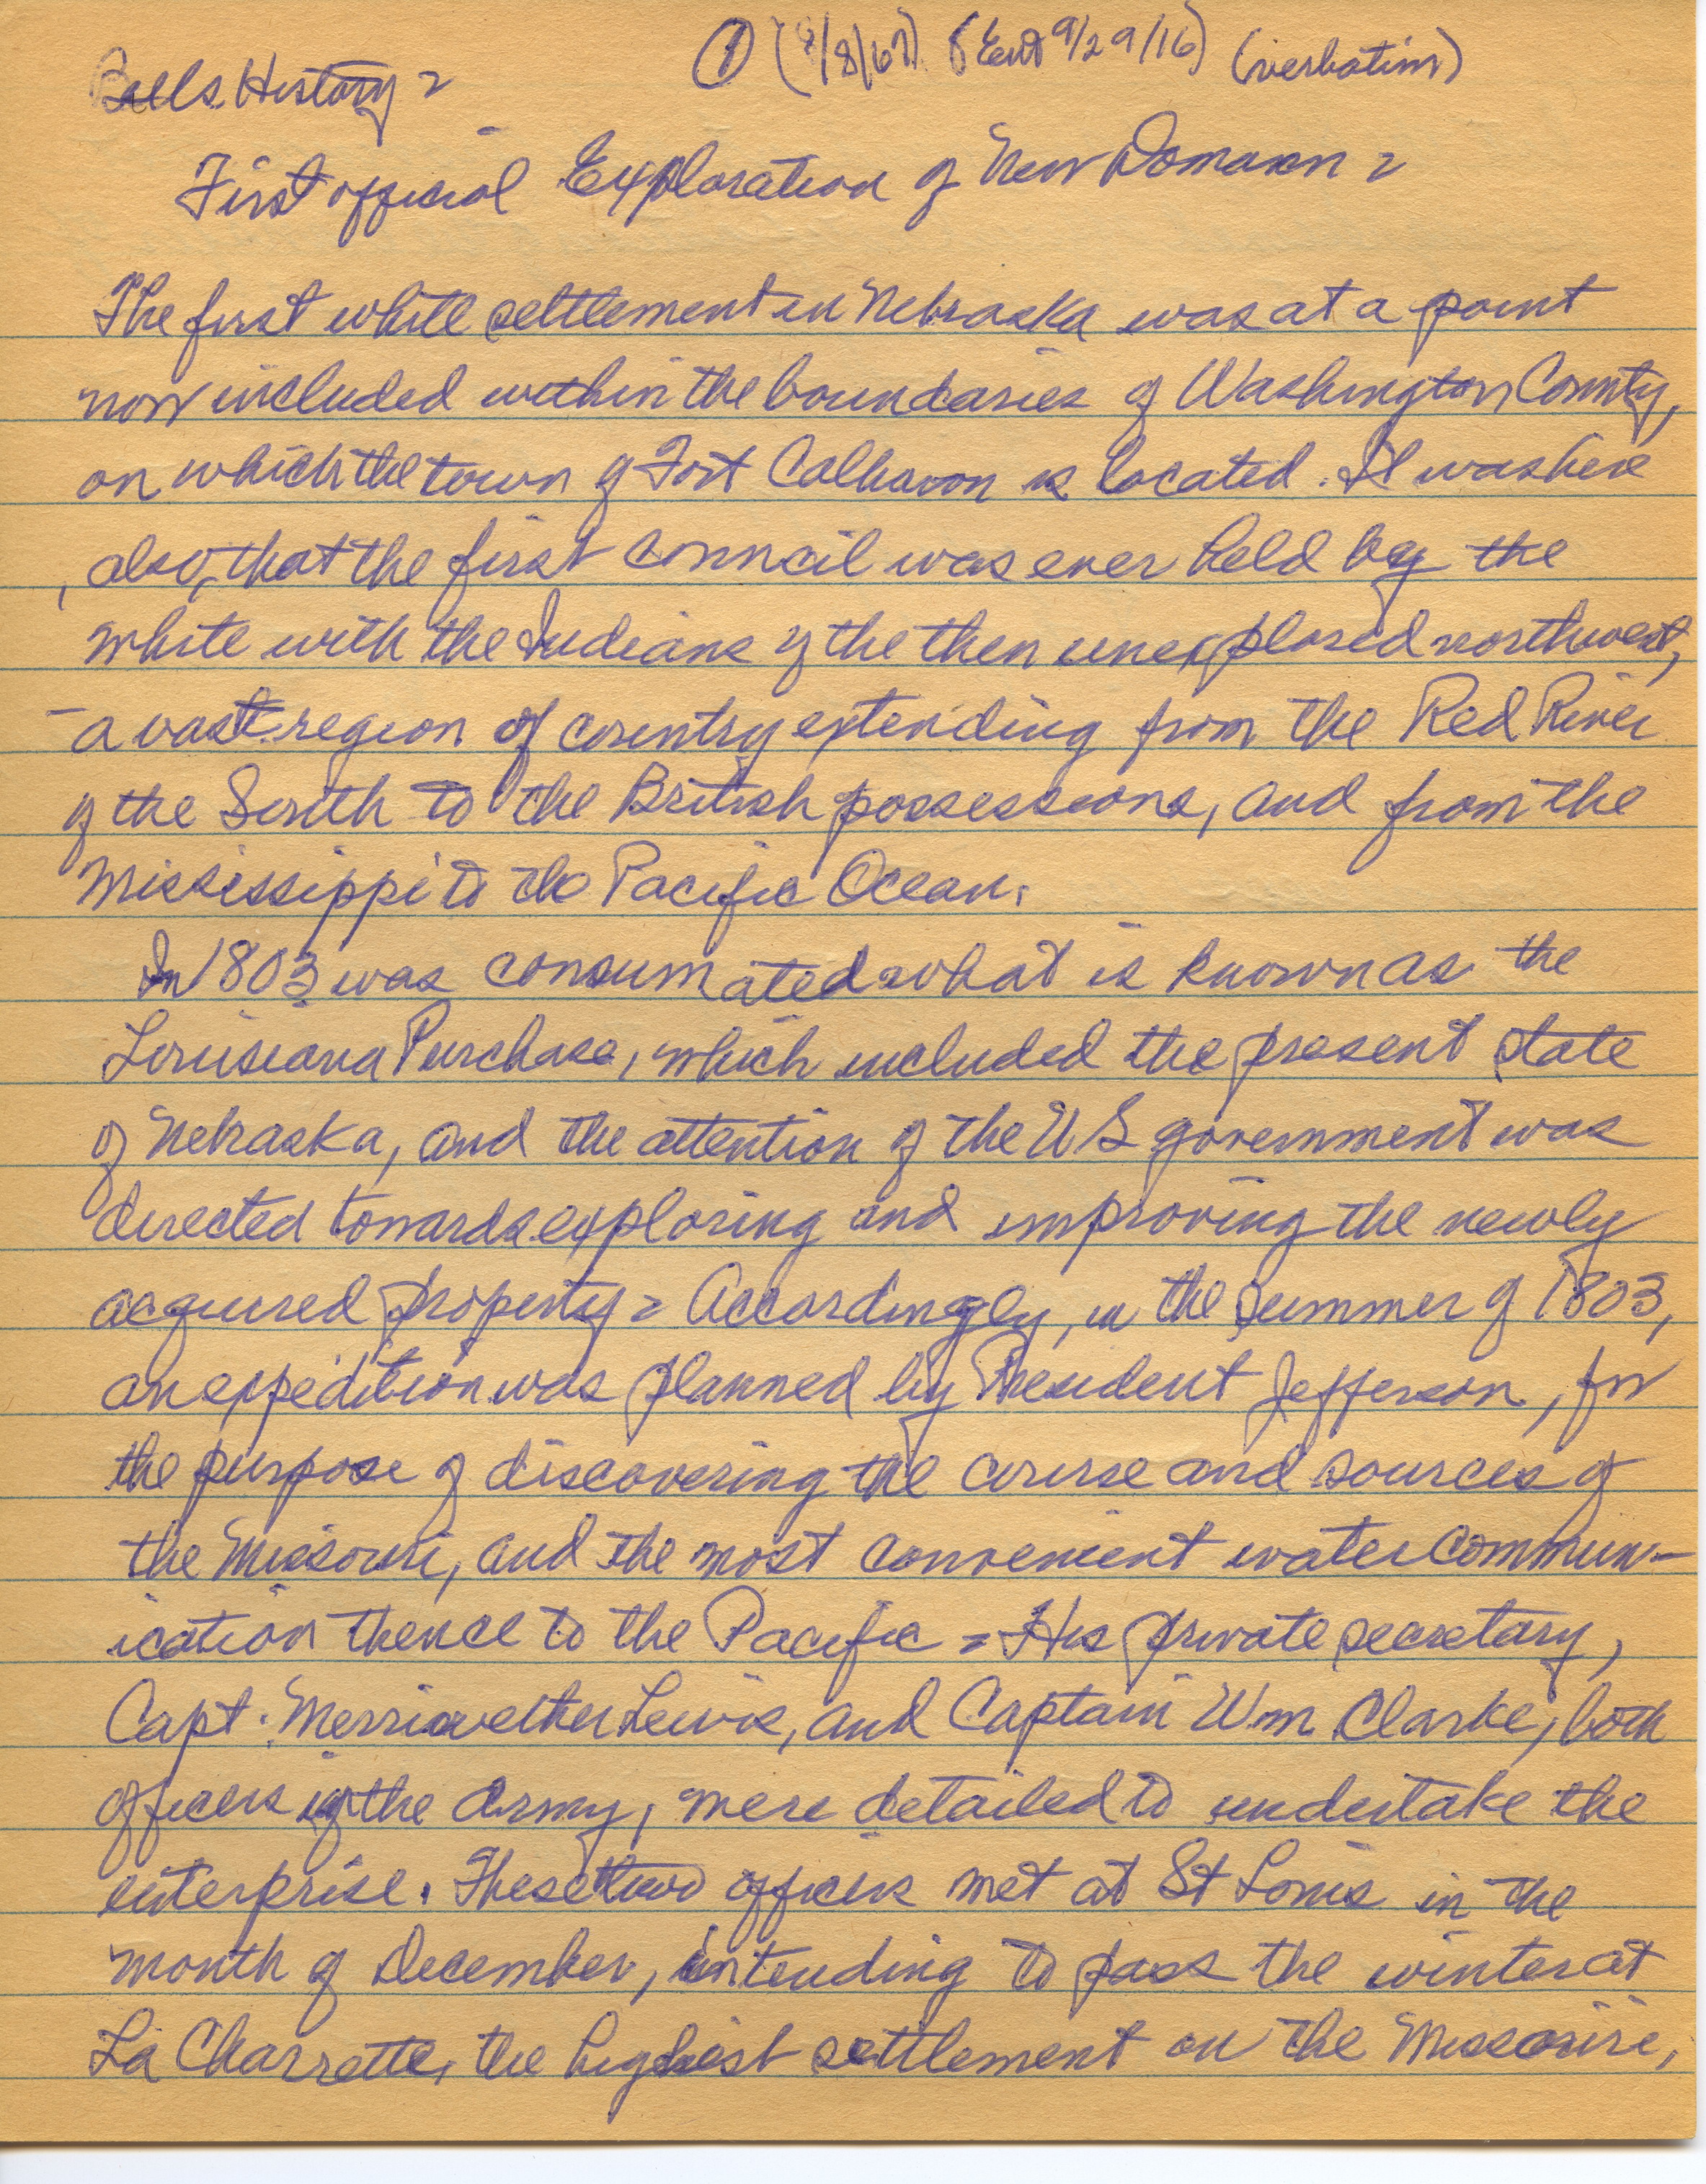 ① (9/8/67) (Ent 9/29/16) (verbatim)
Bells History =
First official Exploration of New Domain =
The first white settlement in Nebraska was at a point
now included within the boundaries of Washington County,
on which the town of Fort Calhoon is located. It was here
, also, that the first council was ever held by the
white with the Indians of the then unexplored northwest,
- a vast region of country extending from the Red River
of the South to the British possessions, and from the
Mississippi to the Pacific Ocean.
In 1803 was consumated what is known as the
Louisiana Purchase, which included the present state
of Nebraska, and the attention of the US government was
directed towards exploring and improving the newly
acquired property = Accordingly, in the summer of 1803,
an expedition was planned by President Jefferson, for
the purpose of discovering the course and sources of
the Missouri, and the most convenient water commun-
ication thence to the Pacific = His private secretary,
Capt. Merriwether Lewis, and Captain Wm Clarke, both
officers of the Army, were detailed to undertake the
enterprise. These two officers met at St Louis in the
month of December, intending to pass the winter at
La Charrette, the highest settlement on the Missouri,